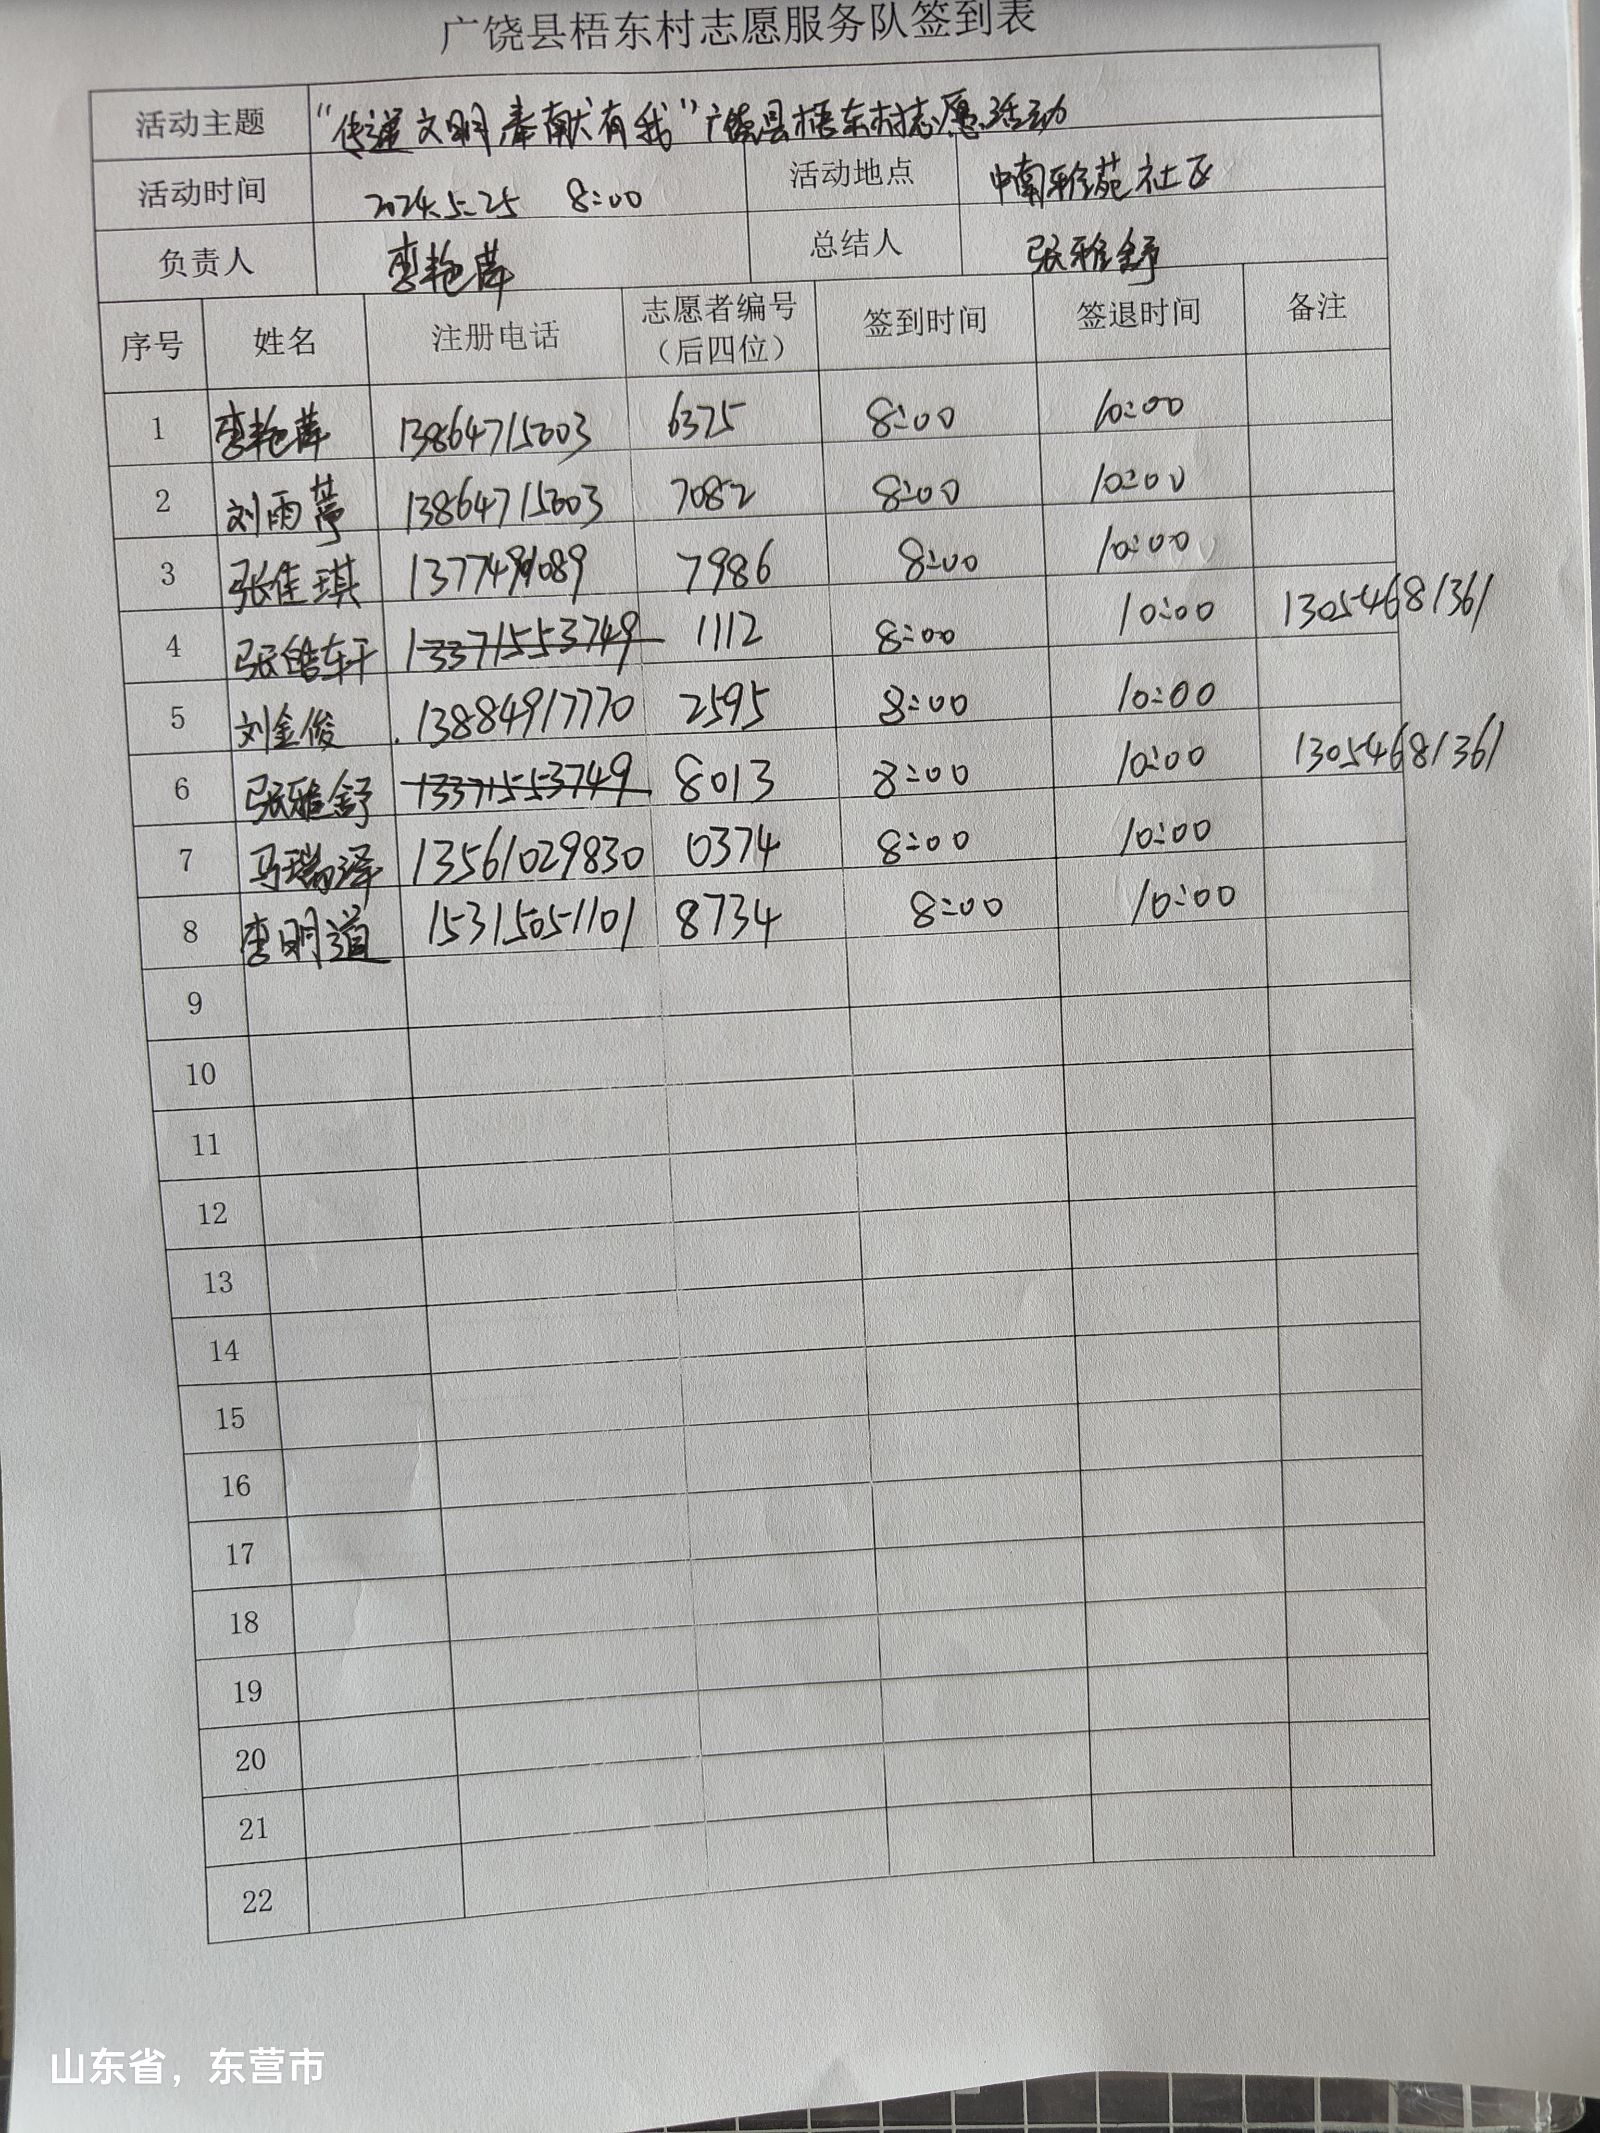 广饶县梧东村志愿服务队签到表
活动主题 “传递文明奉献有我”广饶县梧东村志愿活动
活动时间 2024.5.25 8:00 活动地点 中南雅苑社区
负责人 李艳萍 总结人 张雅舒
序号 姓名 注册电话 志愿者编号（后四位） 签到时间 签退时间 备注
1 李艳萍 13864715003 6375 8:00 10:00
2 刘雨葶 13864715003 7082 8:00 10:00
3 张佳琪 7986 8:00 10:00
4 张皓轩 13371553749 1112 8:00 10:00 13054681361
5 刘金俊 13884917770 2595 8:00 10:00
6 张雅舒 13371553749 8013 8:00 10:00 13054681361
7 马瑞泽 13561029830 0374 8:00 10:00
8 李明道 15315051101 8734 8:00 10:00
9
10
11
12
13
14
15
16
17
18
19
20
21
22
山东省，东营市